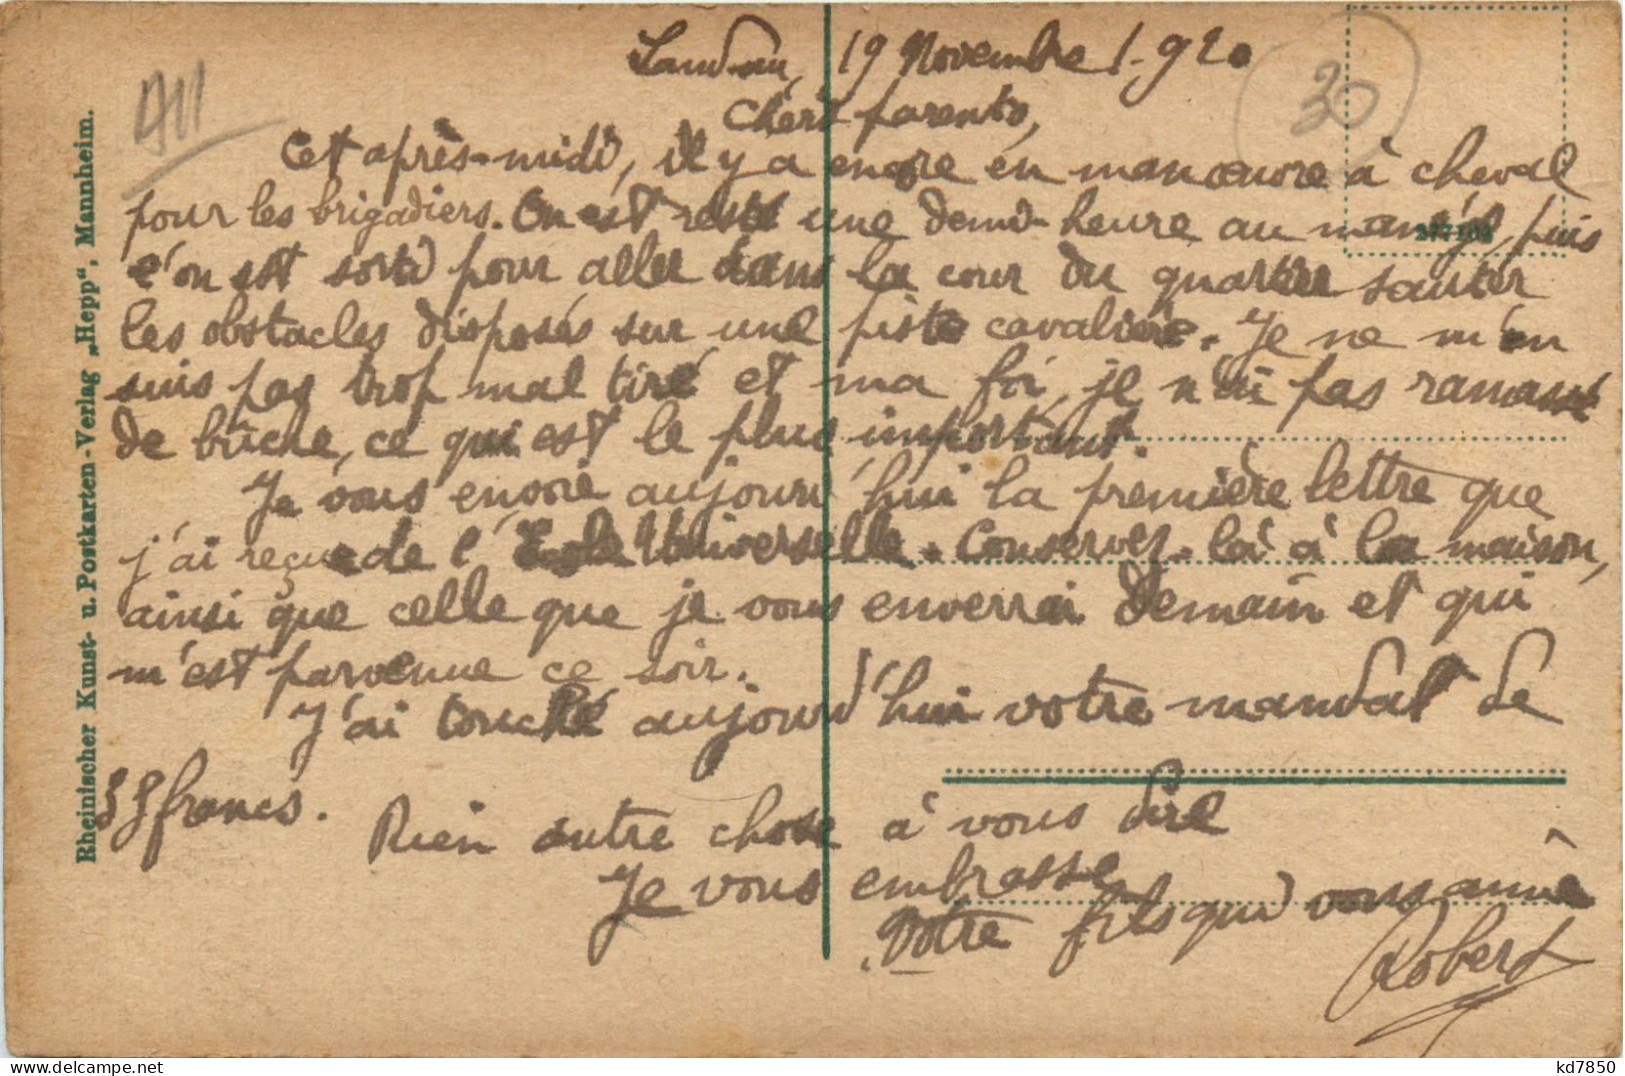 Landau, 19 Novembre 1.920
30
Chers parents,
Cet après-midi, il y a encore eu manœuvre à cheval
pour les brigadiers. On est resté une demi-heure au manège, puis
l'on est sorti pour aller dans la cour du quartier sauter
les obstacles disposés sur une piste cavalière. Je ne m'en
suis pas trop mal tiré et ma foi, je n'ai pas ramassé
de bûche, ce qui est le plus important.
Je vous envoie aujourd'hui la première lettre que
j'ai reçue de l'Ecole Universelle. Conservez-la à la maison,
ainsi que celle que je vous enverrai demain et qui
m'est parvenue ce soir.
J'ai touché aujourd'hui votre mandat de
35 francs.
Rien autre chose à vous dire
Je vous embrasse
Votre fils qui vous aime
Robert
Rheinischer Kunst- u. Postkarten-Verlag „Hepp", Mannheim.
kd7850